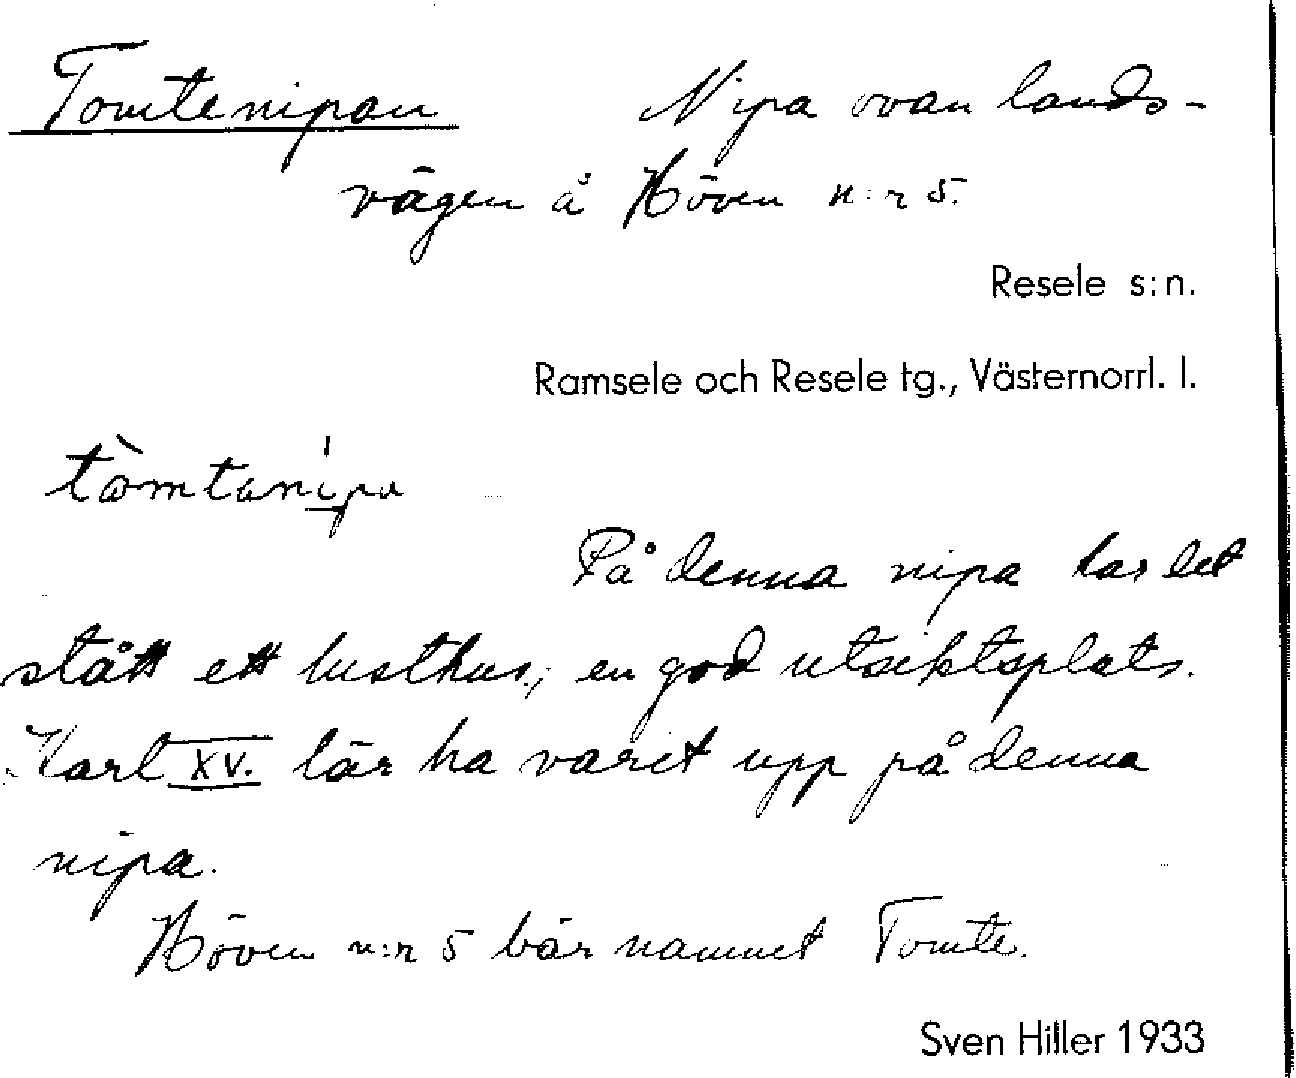 Tomtenipan Nipa ovan lands-
vägen å Höven n:r 5.
Resele s:n.
Ramsele och Resele tg., Västernorrl. l.
På denna nipa har det
stått ett lusthus; en god utsiktsplats.
Karl XV. lär ha varit upp på denna
nipa.
Höven n:r 5 bär namnet Tomte.
Sven Hiller 1933